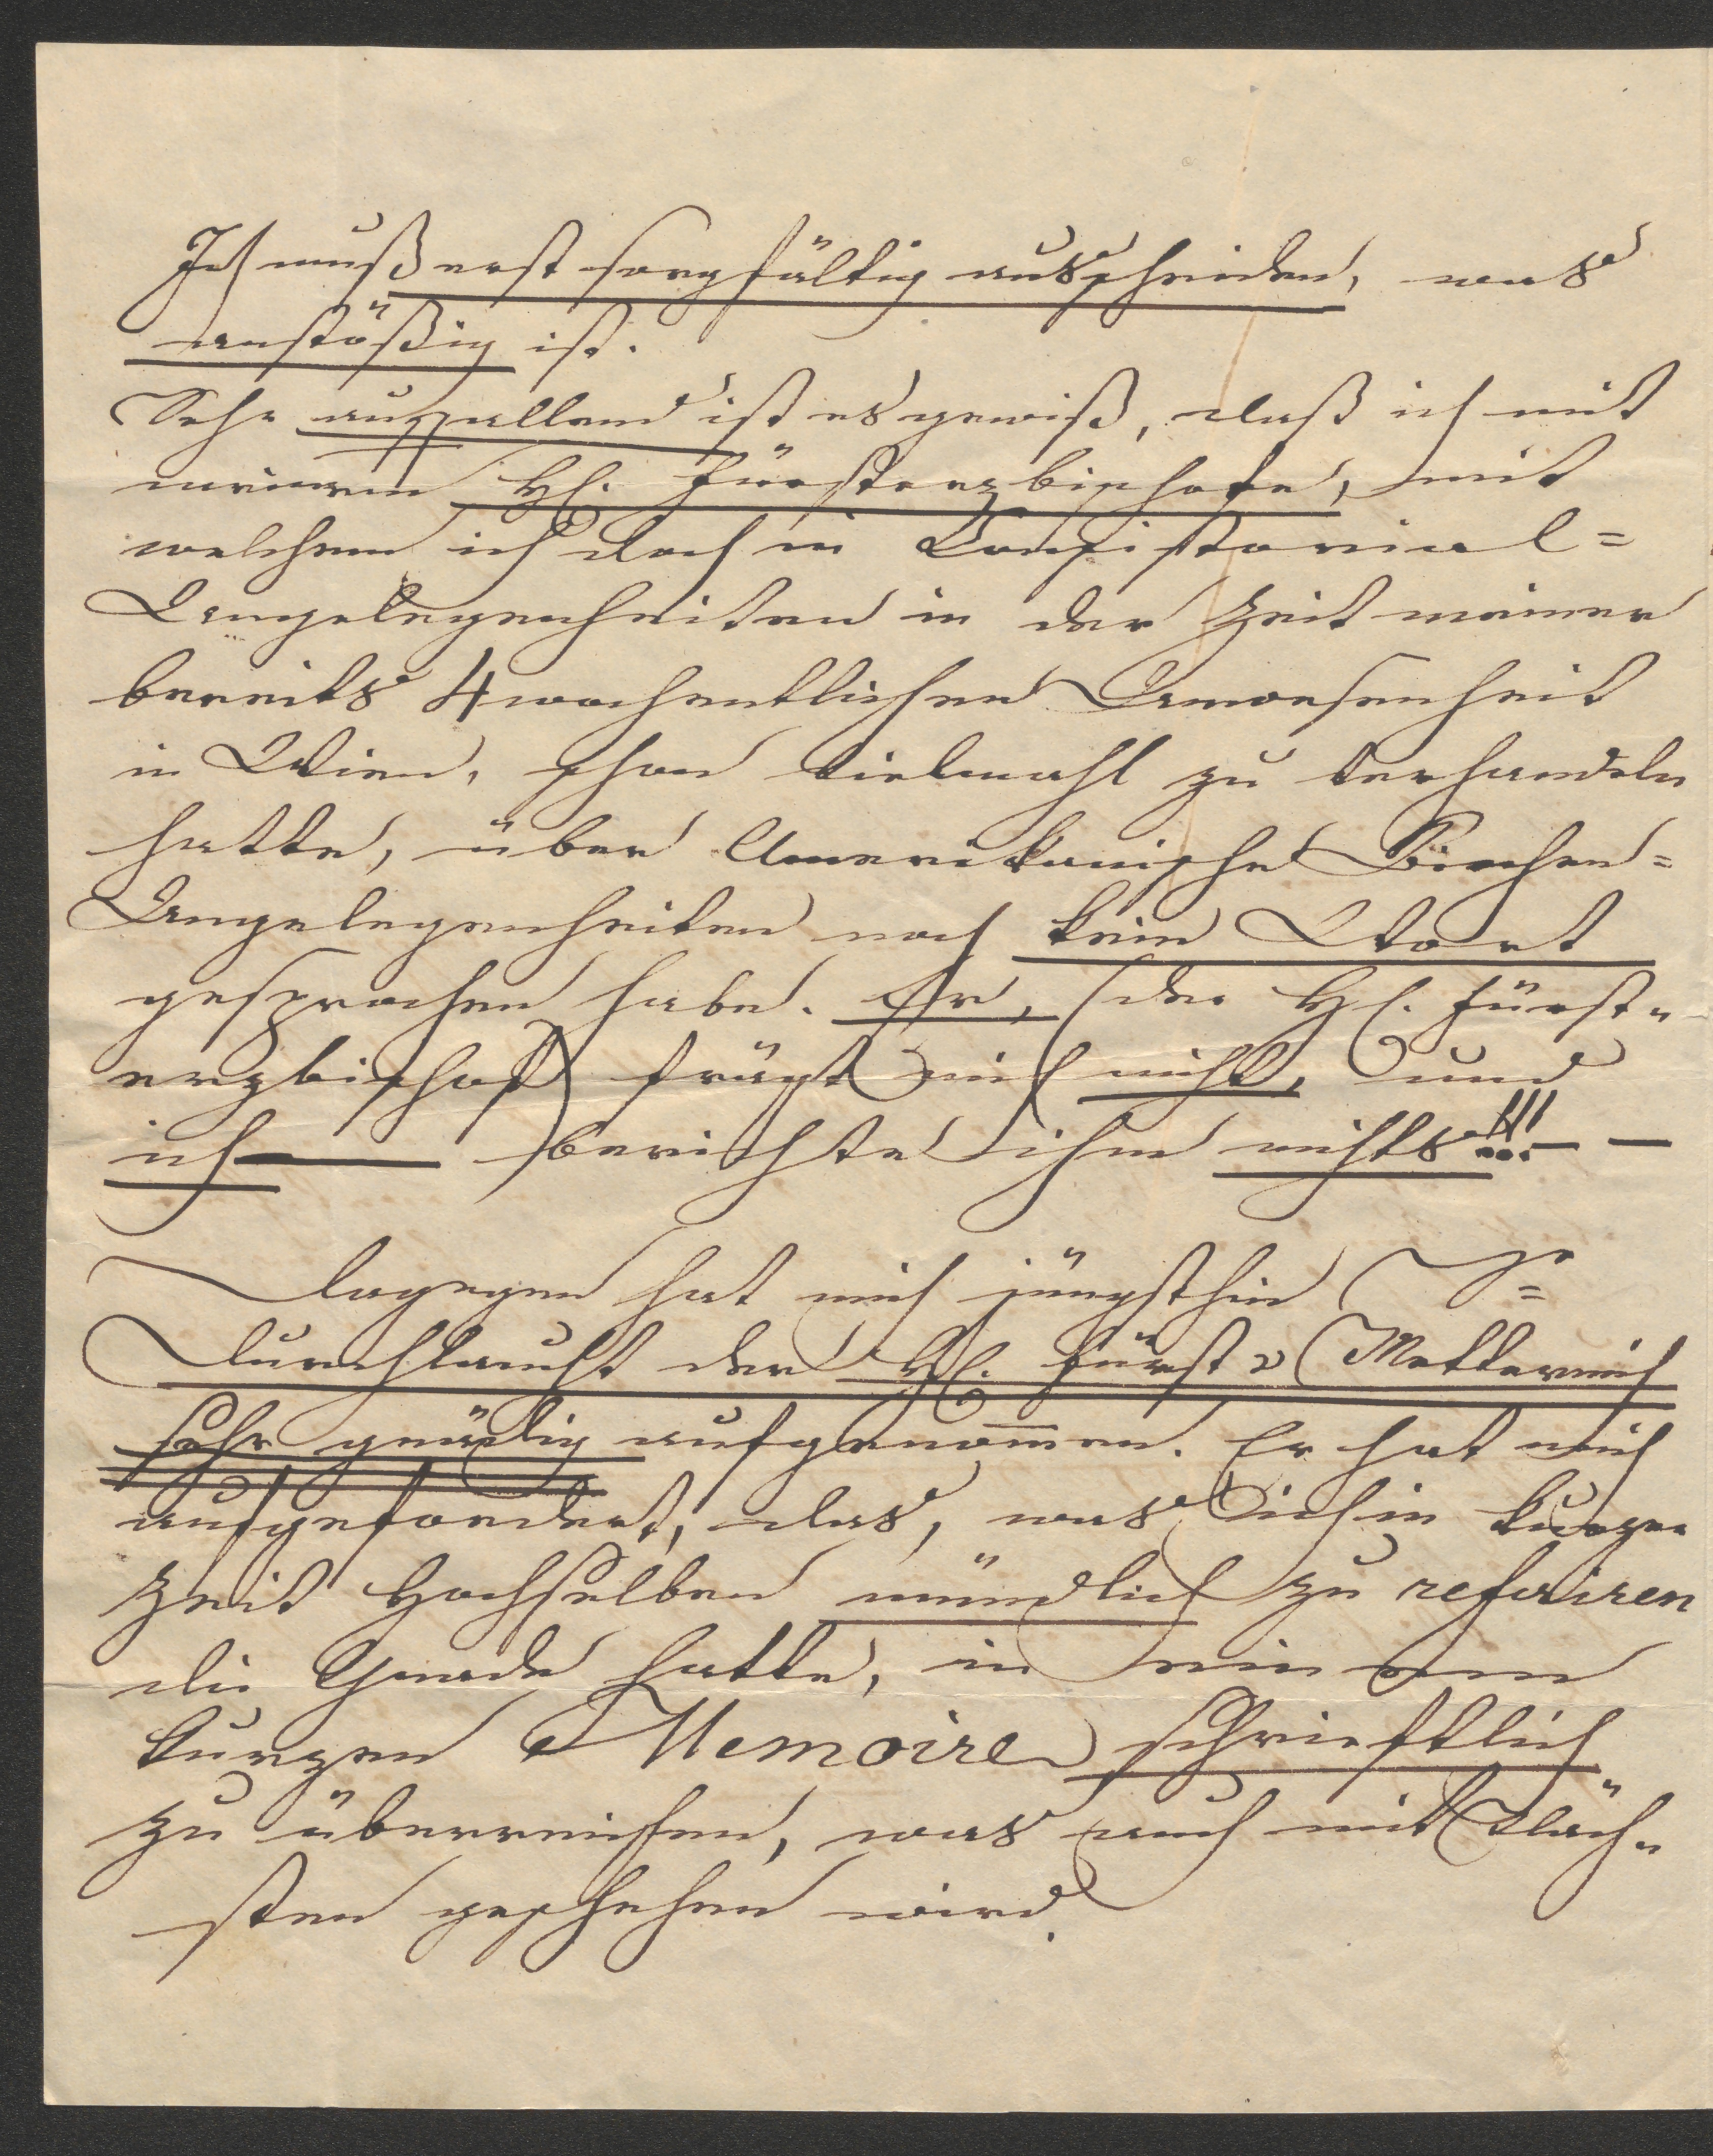 Ich muß erst sorgfältig ausscheiden, was
anstößig ist.
Sehr auffallend ist es gewiß, daß ich mit
meinem H. Fürsterzbischofe, mit
welchem ich doch in Consistorial=
Angelegenheiten in der Zeit meiner
bereits 4wochentlichen Anwesenheit
in Wien, schon vielmahl zu verhandeln
hatte, über Amerikanische Kirchen=
Angelegenheiten noch kein Wort
gesprochen habe. Er, (der H. Fürst=
erzbischof) frägt mich nicht, und
ich — berichte ihm nichts!!! — —
Dagegen hat mich jüngsthin Se=
Durchlaucht der H. Fürst v Metternich
sehr gnädig aufgenom̅en. Er hat mich
aufgefordert, das, was ich in kurzer
Zeit Hochselben mündlich zu referiren
die Gnade hatte, in einem
kurzen Memoire schrieftlich
zu überreichen, was auch mit Näch=
sten geschehen wird.